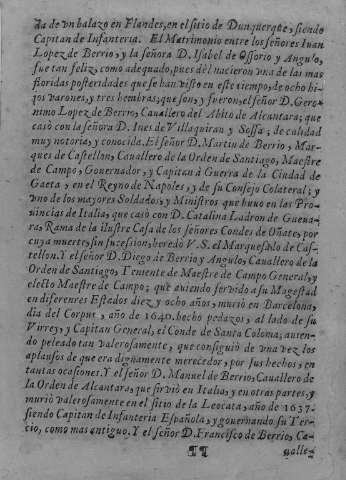 da de vn balazo en Flandes, en el sitio de Dunquerque, siendo
Capitan de Infanteria. El Matrimonio entre los señores Iuan
Lopez de Berrio, y la señora D. Isabel de Ossorio y Angulo,
fue tan feliz, como adequado, pues dèl nacieron vna de las mas
floridas posteridades que se han visto en este tiempo, de ocho hi-
jos varones, y tres hembras; que son, y fueron, el señor D. Gero-
nimo Lopez de Berrio, Cauallero del Abito de Alcantara; que
casò con la señora D. Ines de Villaquiran y Sossa; de calidad
muy notoria, y conocida. El señor D. Martin de Berrio, Mar-
ques de Castellon, Cauallero de la Orden de Santiago, Maestre
de Campo, Gouernador, y Capitan à Guerra de la Ciudad de
Gaeta, en el Reyno de Napoles, y de su Consejo Colateral; y
vno de los mayores Soldados, y Ministros que huuo en las Pro-
uincias de Italia, que casò con D. Catalina Ladron de Gueua-
ra, Rama de la ilustre Casa de los señores Condes de Oñate, por
cuya muerte, sin sucession, heredò V. S. el Marquesado de Cas-
tellon. Y el señor D. Diego de Berrio y Angulo, Cauallero de la
Orden de Santiago, Teniente de Maestre de Campo General, y
electo Maestre de Campo; que auiendo seruido a su Magestad
en diferentes Estados diez y ocho años, murió en Barcelona,
dia del Corpus, año de 1640. hecho pedazos, al lado de su
Virrey, y Capitan General, el Conde de Santa Coloma; auien-
do peleado tan valerosamente, que consiguió de vna vez los
aplausos de que era dignamente merecedor, por sus hechos, en
tantas ocasiones. Y el señor D. Manuel de Berrio, Cauallero de
la Orden de Alcantara, que siruió en Italia, y en otras partes, y
murió valerosamente en el sitio de la Leocata, año de 1637.
siendo Capitan de Infanteria Española, y gouernando su Ter-
cio, como mas antiguo. Y el señor D. Francisco de Berrio, Ca-
¶¶ ualle-